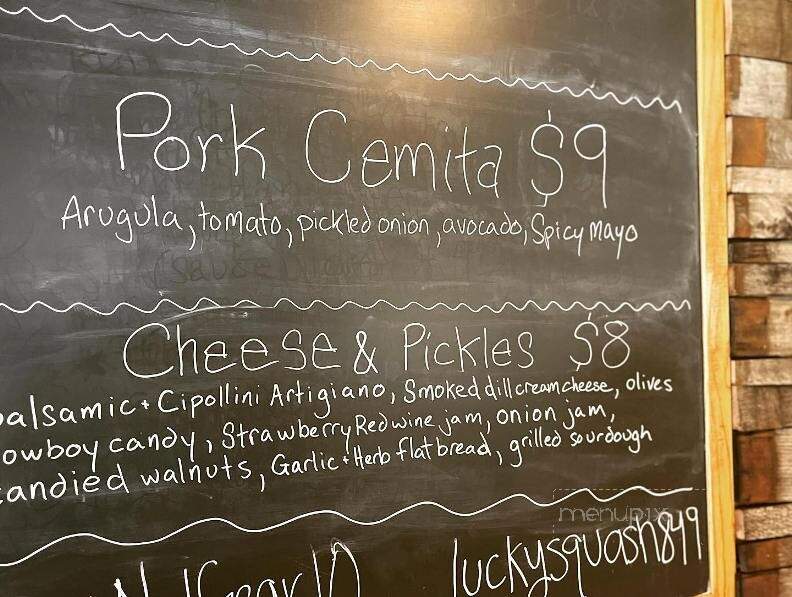 Pork Cemita $9
Arugula, tomato, pickled onion, avocado, Spicy Mayo
Cheese & Pickles $8
alsamic + Cipollini Artigiano, Smoked dill cream cheese, olives
owboy candy, Strawberry Red wine jam, onion jam,
candied walnuts, Garlic + Herb flat bread, grilled sourdough
menupix
luckysquash849